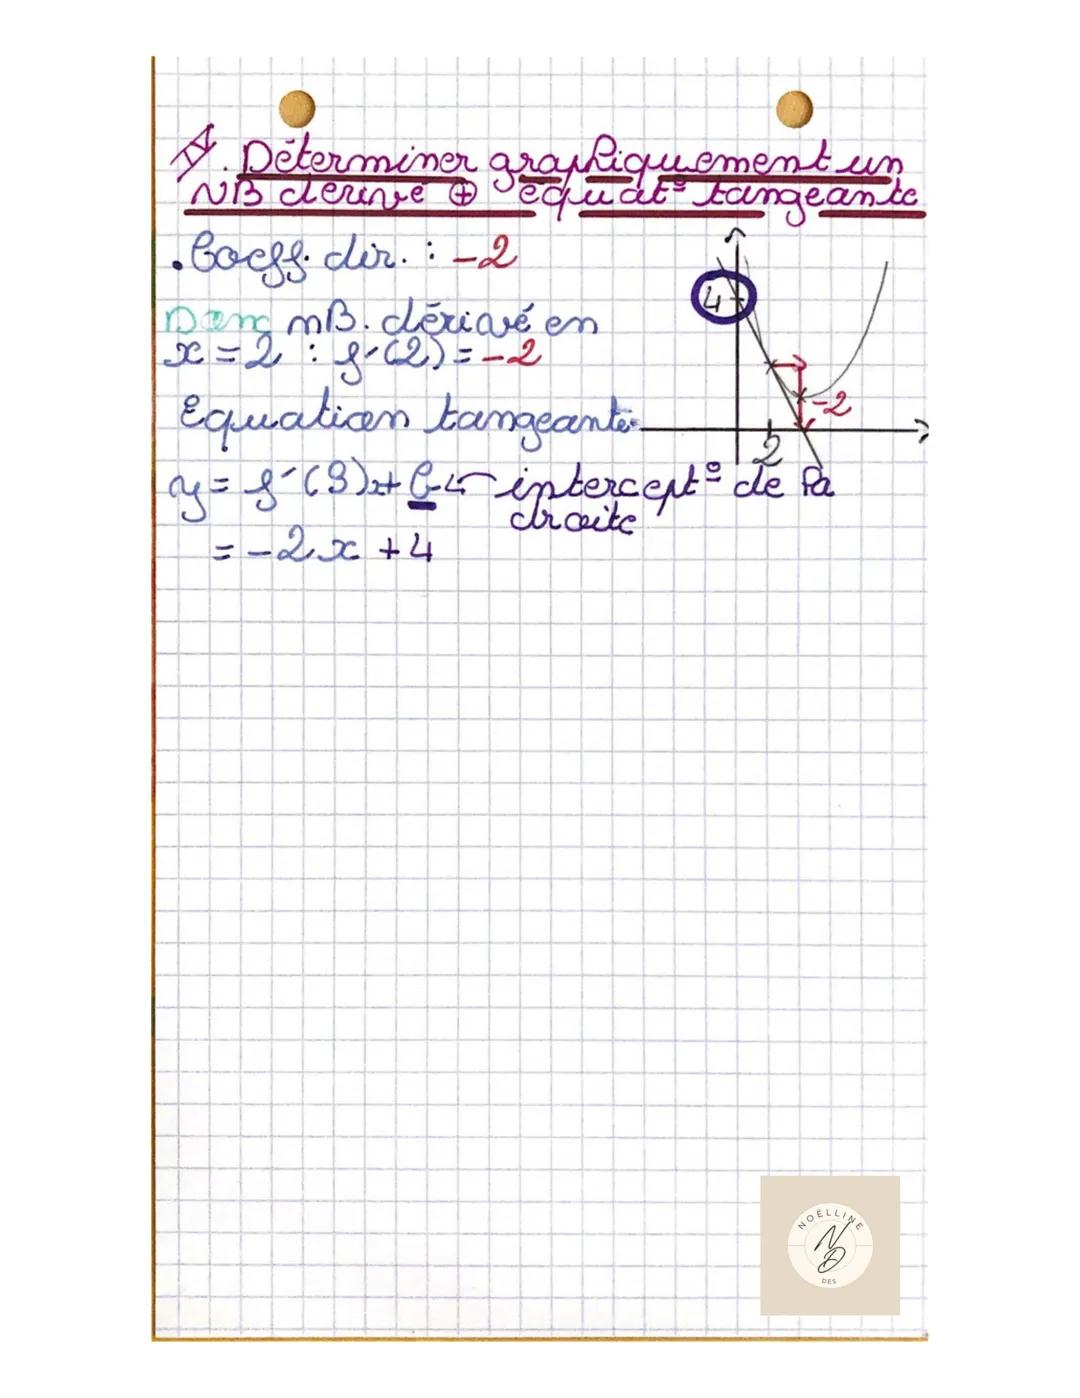 IV. Déterminer graphiquement un
NB dérivé ⊕ équat° tangeante
. Coeff. dir. : -2
Donc nB. dérivé en
x = 2 : f'(2) = -2
Equation tangeante:
y = f'(3)x + b ← intercept° de la
droite
= -2x + 4
4
-2
2
NOËLLINE
ND
DES